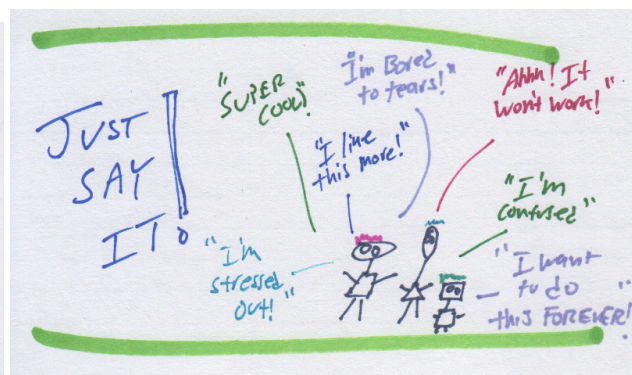 JUST
SAY
IT!
"SUPER
COOL!"
"I'm Bored
to tears!"
"Ahhh! It
won't work!"
"I like
this more!"
"I'm
confused"
"I'm
stressed
out!"
"I want
to do
this FOREVER!"